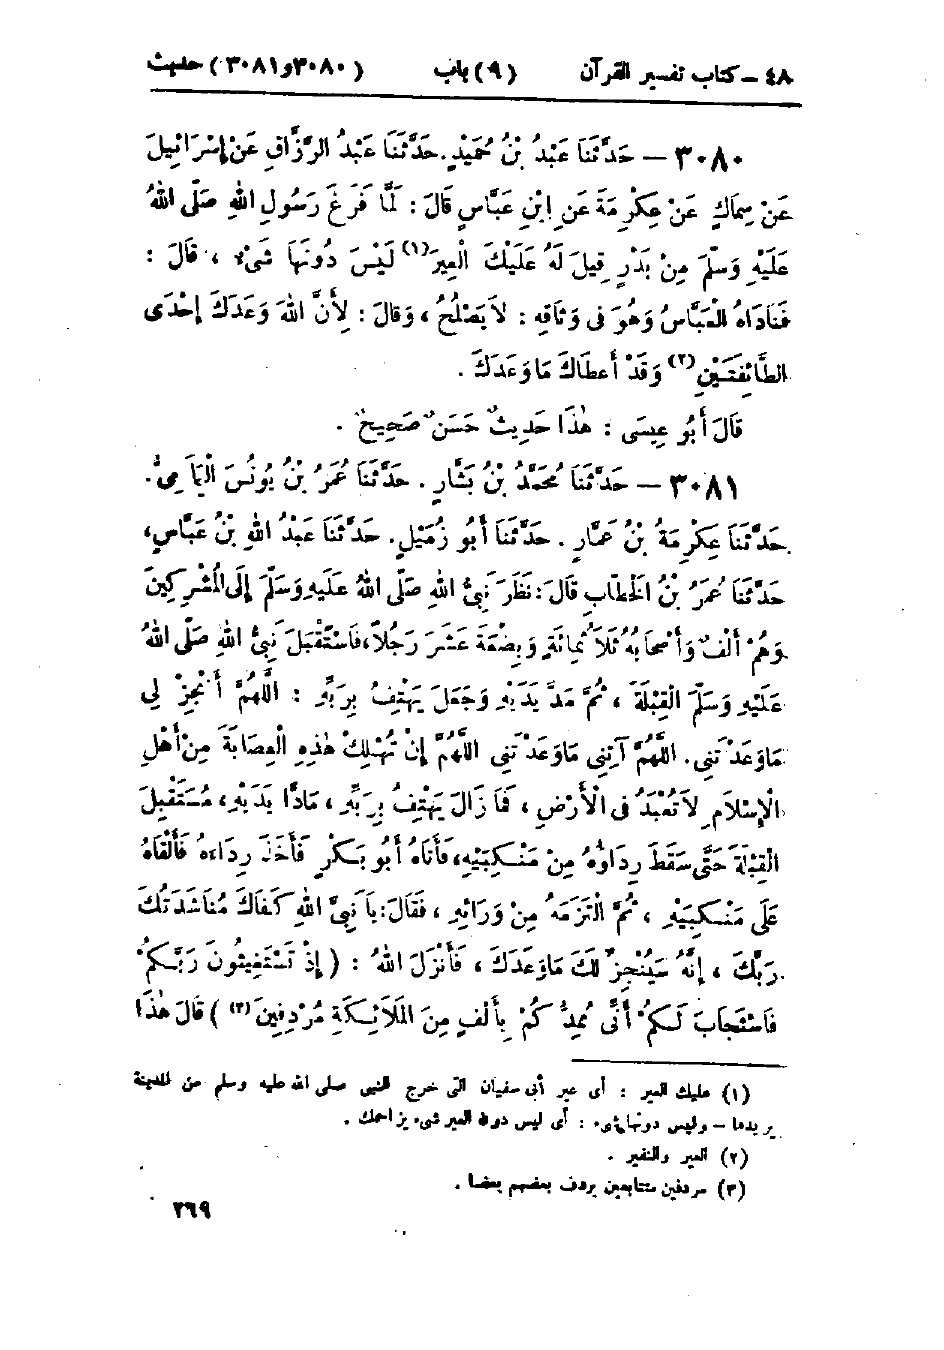 ٤٨ – كتاب تفسير القرآن (٩) باب (٣٠٨٠ و ٣٠٨١) حديث
٣٠٨٠ – حَدَّثَنَا عَبْدُ بْنُ حُمَيْدٍ. حَدَّثَنَا عَبْدُ الرَّزَّاقِ عَنْ إِسْرَائِيلَ
عَنْ سِمَاكٍ عَنْ عِكْرِمَةَ عَنِ ابْنِ عَبَّاسٍ قَالَ : لَمَّا فَرَغَ رَسُولِ اللهِ صَلَّى اللهُ
عَلَيْهِ وَسَلَّمَ مِنْ بَدْرٍ قِيلَ لَهُ عَلَيْكَ الْعِيرَ(١) لَيْسَ دُونَهَا شَىْءٌ ، قَالَ :
فَنَادَاهُ الْعَبَّاسُ وَهُوَ فِى وَثَاقِهِ : لاَ يَصْلُحُ ، وَقَالَ : لِأَنَّ اللهَ وَعَدَكَ إِحْدَى
الطَّائِفَتَيْنِ(٢) وَقَدْ أَعطَاكَ مَا وَعَدَكَ .
قَالَ أَبُو عِيسَى : هٰذَا حَدِيثٌ حَسَنٌ صَحِيحٌ .
٣٠٨١ – حَدَّثَنَا مُحَمَّدُ بْنُ بَشَّارٍ . حَدَّثَنَا عُمَرُ بْنُ يُونُسَ الْيَمَامِىُّ .
حَدَّثَنَا عِكْرِمَةُ بْنُ عَمَّارٍ . حَدَّثَنَا أَبُو زُمَيْلٍ. حَدَّثَنَا عَبْدُ اللهِ بْنُ عَبَّاسٍ،
حَدَّثَنَا عُمَرُ بْنُ الْخَطَّابِ قَالَ: نَظَرَ نَبِىُّ اللهِ صَلَّى اللهُ عَلَيْهِ وَسَلَّمَ إِلَى الْمُشْرِكِينَ
وَهُمْ أَلْفٌ وَأَصْحَابُهُ ثَلاَثُمِائَةٍ وَبِضْعَةَ عَشَرَ رَجُلاً، فَاسْتَقْبَلَ نَبِىُّ اللهِ صَلَّى اللهُ
عَلَيْهِ وَسَلَّمَ الْقِبْلَةَ ، ثُمَّ مَدَّ يَدَيْهِ وَجَعَلَ يَهْتِفُ بِرَبِّهِ : اللَّهُمَّ أَنْجِزْ لِى
مَا وَعَدْتَنِى. اللَّهُمَّ آتِنِى مَا وَعَدْتَنِى اللَّهُمَّ إِنْ تُهْلِكْ هٰذِهِ الْعِصَابَةَ مِنْ أَهْلِ
الْإِسْلاَمِ لاَ تُعْبَدُ فِى الْأَرْضِ ، فَمَا زَالَ يَهْتِفُ بِرَبِّهِ ، مَادًّا يَدَيْهِ ، مُسْتَقْبِلَ
الْقِبْلَةَ حَتَّى سَقَطَ رِدَاؤُهُ مِنْ مَنْكِبَيْهِ، فَأَتَاهُ أَبُو بَكْرٍ فَأَخَذَ رِدَاءَهُ فَأَلْقَاهُ
عَلَى مَنْكِبَيْهِ ، ثُمَّ الْتَزَمَهُ مِنْ وَرَائِهِ ، فَقَالَ: يَا نَبِىَّ اللهِ كَفَاكَ مُنَاشَدَتُكَ
رَبَّكَ ، إِنَّهُ سَيُنْجِزُ لَكَ مَا وَعَدَكَ ، فَأَنْزَلَ اللهُ : ( إِذْ تَسْتَغِيثُونَ رَبَّكُمْ
فَاسْتَجَابَ لَكُمْ أَنِّى مُمِدُّكُمْ بِأَلْفٍ مِنَ الْمَلاَئِكَةِ مُرْدِفِينَ(٣) ) قَالَ هٰذَا
(١) عليك العير : أى عير أبى سفيان التى خرج النبى صلى الله عليه وسلم من المدينة
يريدها – وليس دونها شىء : أى ليس دون العير شىء يزاحمك .
(٢) العير والنفير .
(٣) مردفين متتابعين يردف بعضهم بعضا .
٢٦٩